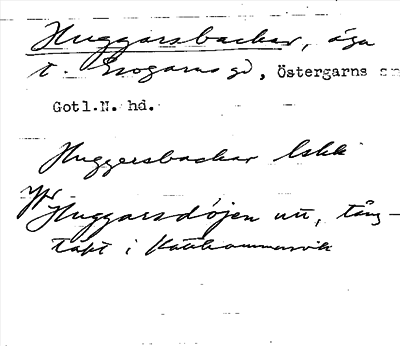 Huggarsbackar, äga
t. Grogarns gd, Östergarns sn
Gotl.N. hd.
Huggersbackar lskk
Jfr
Huggarsdöjen utt, tång-
täkt i Katthammarsvik